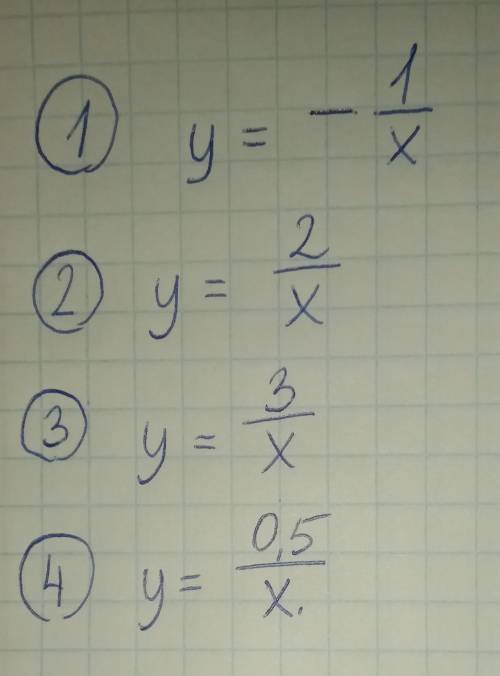 ① y = - 1/x
② y = 2/x
③ y = 3/x
④ y = 0,5/x.